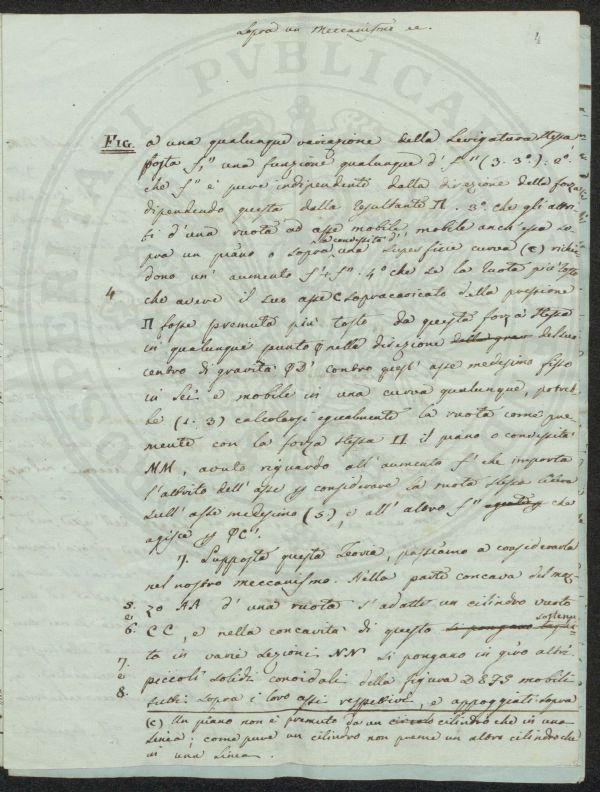 Sopra un Meccanismo ec.
4
FIG. a una qualunque variazione della Levigatura stessa
posta f," una funzione qualunque d' f" (3. 3.°): 2.°
che f" è pure indipendente dalla direzione della forza
dipendendo questa dalla resultante Π. 3.° che gli attri-
ti d'una ruota ad asse mobile, mobile anch'essa so-
la convessità d'
pra un piano o sopra una superficie curva (c) richie
dono un' aumento f'+f". 4.° che se la ruota più tosto
4 che avere il suo asse C sopracaricato della pressione
Π fosse premuta più tosto da questa forza stessa
in qualunque punto φ nella direzione del suo
centro di gravità φD' contro quest' asse medesimo fisso
in sei e mobile in una curva qualunque, potreb-
be (1. 3) calcolarsi egualmente la ruota come pre-
mente con la forza stessa Π il piano o convessità
MM, avuto riguardo all' aumento f' che importa
l'attrito dell' asse considerare la ruota stessa
sull' asse medesimo (5), e all' altro f" che
agisce φC".
7. Supposta questa Teoria, passiamo a considerarla
nel nostro meccanismo. Nella parte concava del moz-
5. zo AA d' una ruota s'adatti un cilindro vuoto
e
6. CC, e nella concavità di questo si pongano sostenu-
ta in varie sezioni NN si pongano in giro altri
7.
e
8. piccoli solidi conoidali della figura DEFS mobili
tutti sopra i loro assi respettivi, e appoggiati sopra
(c) Un piano non è premuto da un circolo cilindro che in una
linea; come pure un cilindro non preme un altro cilindro che
in una linea.